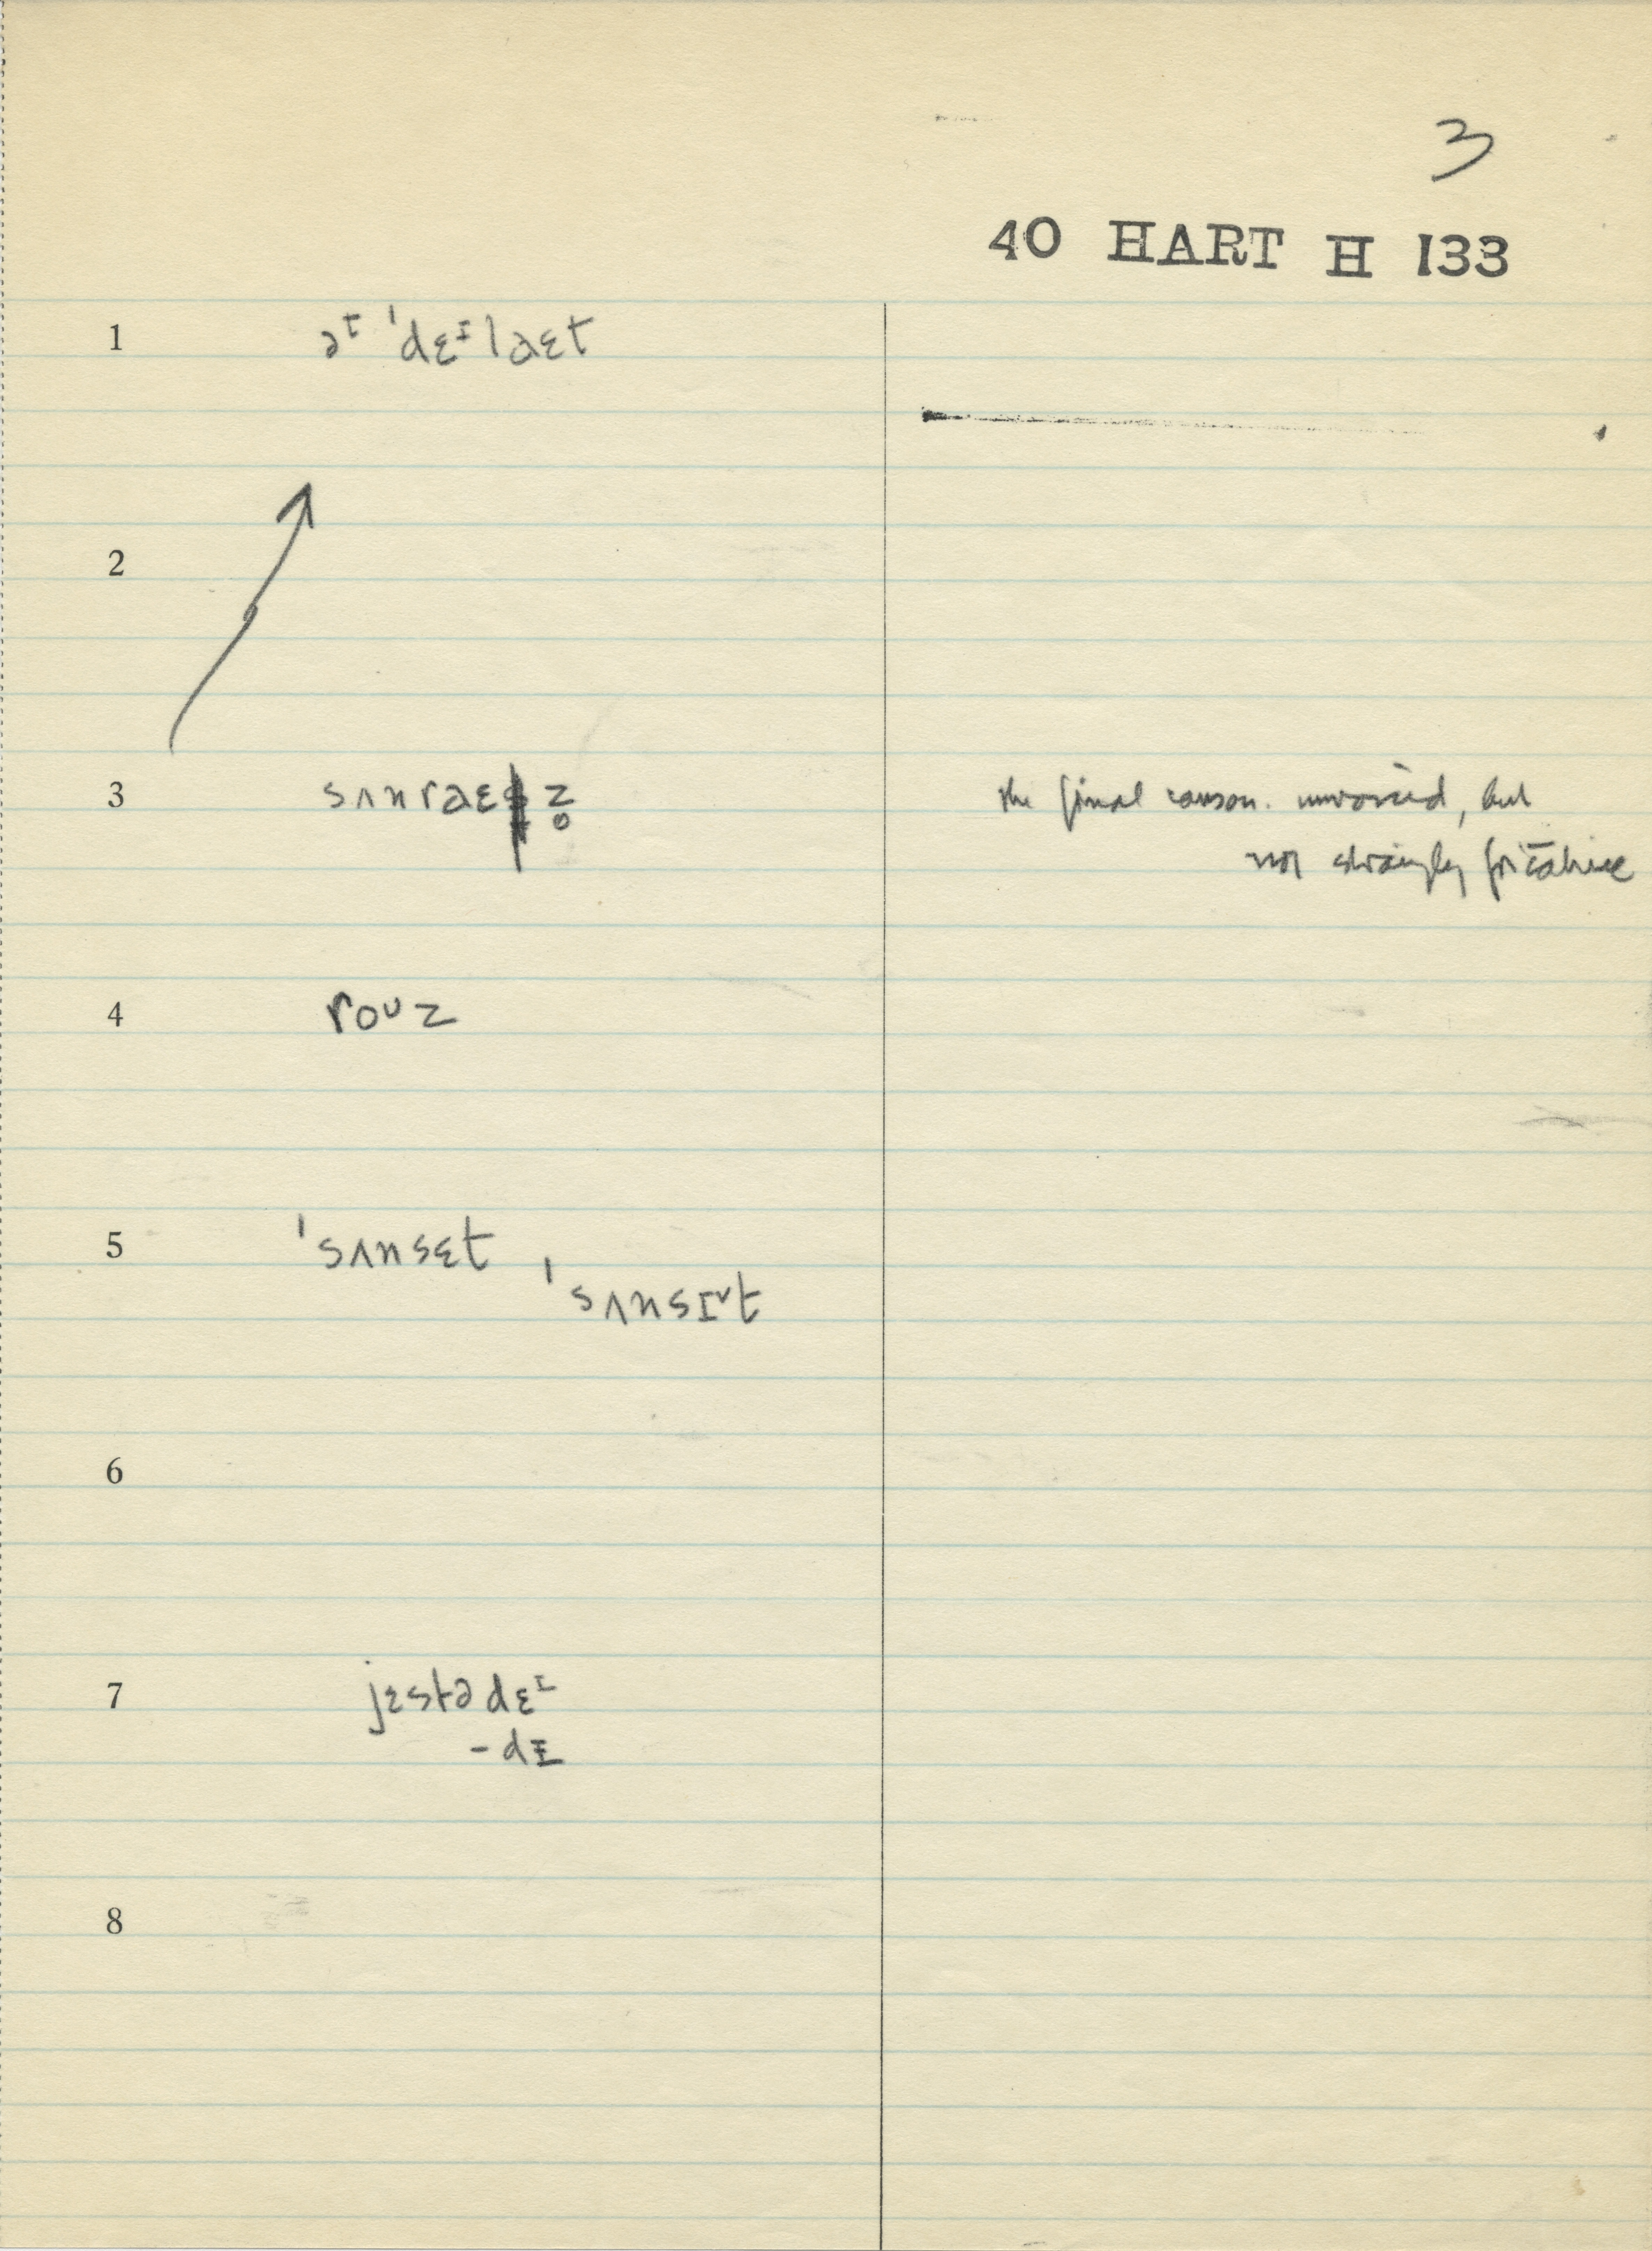 3
40 HART H 133
1 əᶦ ˈdɛᶦlaɛt
2
3 sʌnraɛz̥ the final conson. unvoiced, but
not strongly fricative
4 roᶸz
5 ˈsʌnsɛt, ˈsʌnsɪ˅t
6
7 jɛstədɛᶦ
-dɪ
8